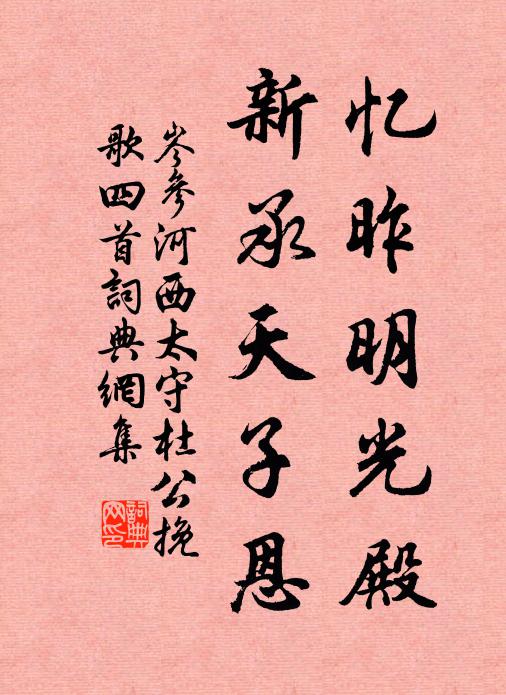 忆昨明光殿
新承天子恩
岑參河西太守杜公挽
歌四首詞典網集
詞典
网印